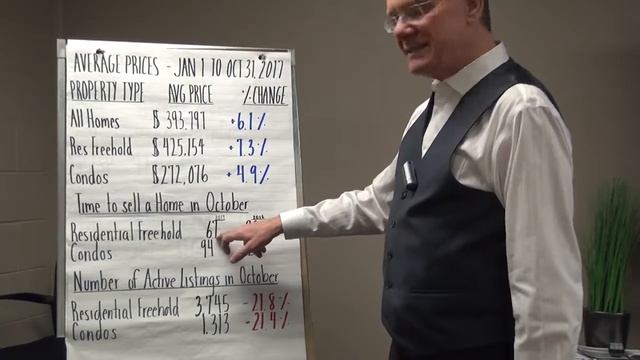 AVERAGE PRICES - JAN 1 TO OCT 31, 2017
PROPERTY TYPE AVG PRICE % CHANGE
All Homes $ 393,797 +6.1%
Res Freehold $ 425,154 +7.3%
Condos $ 272,076 +4.9%
Time to sell a Home in October
Residential Freehold
Condos 94
Number of Active Listings in October
Residential Freehold 3,745 -21.8%
Condos 1,313 -21.4%